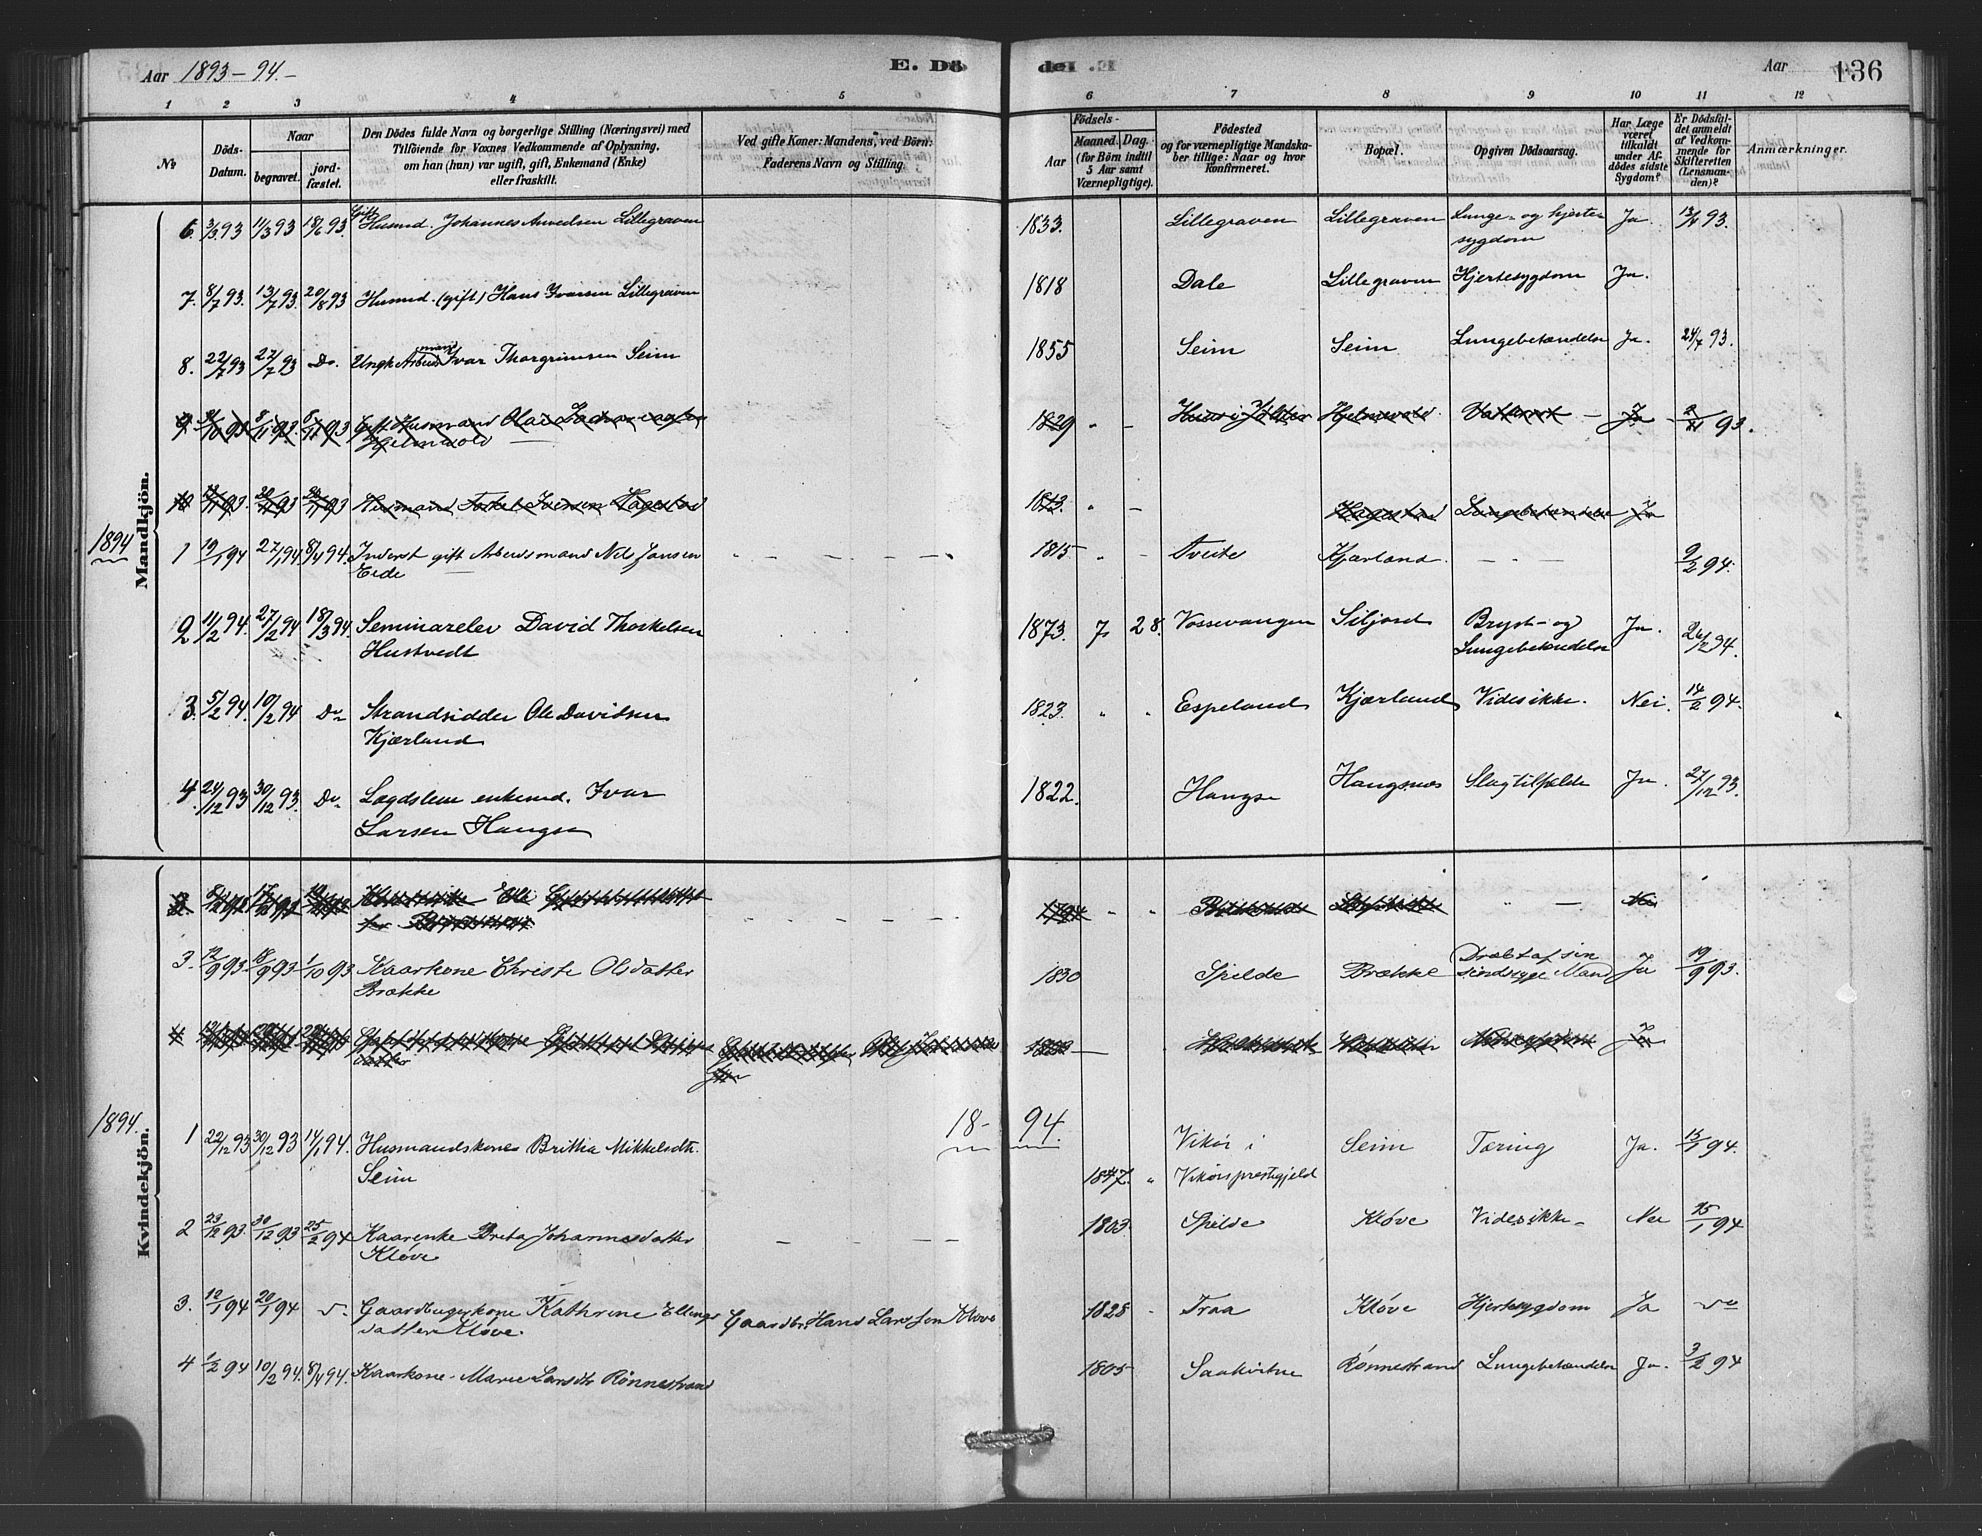 Aar 1893-94.- E. Dö
del Aar 136
1 2 3 4 5 6 7 8 9 10 11 12
No
Döds-Datum.
Naar
begravet.
jord-fæstet.
Den Dödes fulde Navn og borgerlige Stilling (Næringsvei) med
Tilföiende for Voxnes Vedkommende af Oplysning,
om han (hun) var ugift, gift, Enkemand (Enke)
eller fraskilt.
Ved gifte Koner: Mandens, ved Börn:
Faderens Navn og Stilling.
Födsels-
Aar
Maaned. Dag.
(for Börn indtil
5 Aar samt
Værnepligtige).
Födested
og for værnepligtige Mandska-
ber tillige: Naar og hvor
konfirmeret.
Bopæl.
Opgiven Dödsaarsag.
Har Læge
været
tilkaldt
under Af-
dödes sidste
Sygdom?
Er Dödsfal-
det anmeldt
af Vedkom-
mende for
Skifteretten
(Lensman-
den)?
Anmærkninger.
Mandkjön.
6. 3/3 93 11/3 93 18/6 93. Gift Husmd. Johannes Amedsen Lillegraven 1833. Lillegraven Lillegraven Lunge- og hjerte-
sygdom Ja. 13/4 93.
7. 8/7 93. 13/7 93. 20/8 93 Husmd. (gift) Hans Ivarsen Lillegraven 1818 Dale Lillegraven Hjertesygdom Ja.
8. 22/7 93 27/7 93 Do. Ungk. Arbeidsmand Ivar Thorgrimsen Seim 1855 Seim Seim Lungebetændelse Ja. 24/7 93.
9 31/10 93 8/11 93. 8/11 93 Gift Husmand Ola
Hjelmevold 1829 " - Hjelmevold Ja 2/11 93.
10 20/11 93 Husmand Torkel Iversen Hagestad 1813. " - Hagestad Lungebetændelse Ja
1894
1 19/1 94 27/1 94. 8/4 94. Inderst gift Arbeidsmand Nils Jansen
Eide 1815 " - Tveite Kjærland. - " - 9/2 94.
2 11/2 94. 27/2 94 18/3 94. Seminarelev David Thorkelsen
Hustvedt 1873. 7. 28. Vossevangen Siljord Bryst- og
Lungebetændelse Ja. 26/2 94.
3. 5/2 94. 10/2 94 Do Strandsidder Ole Davidsen
Kjærland 1823. " " Espeland Kjærland Vides ikke. Nei. 14/2 94.
4. 24/12 93 30/12 93. Do Lægdslem enkemd. Ivar
Larsen Haugse 1822. Haugse Haugsnæs Slagtilfælde Ja 27/12 93.
Kvindekjön.
Eli 1794 " " " - Nei
3. 12/9 93 18/9 93 1/10 93 Kaarkone Christi Olsdatter
Brække 1830 Spilde Brække Dræbt af sin
sindsyge Mand Ja 19/9 93.
4
datter
Ja
1894.
18- 94.
1 22/12 93 30/12 93 14/1 94. Husmandskone Brittha Mikkelsdtr.
Seim 1847. " Vikør i
Vikørs prestegjeld Seim Tæring Ja. 15/1 94.
2 23/12 93. 30/12 93 25/2 94 Kaarenke Brita Johannesdatter
Kløve 1803 Spilde Kløve Vides ikke - Nei 15/1 94
3. 12/1 94 20/1 94 Gaardbrugerkone Kathrine Ellings-
datter Kløve. Gaardbr. Hans Larsen Kløve 1828 Traa Kløve Hjertesygdom Ja do
4 1/2 94 10/2 94. 8/4 94. Kaarkone. Marie Larsdtr Rønnestrand 1805 Rønnestrand Lungebetændelse Ja. 3/2 94